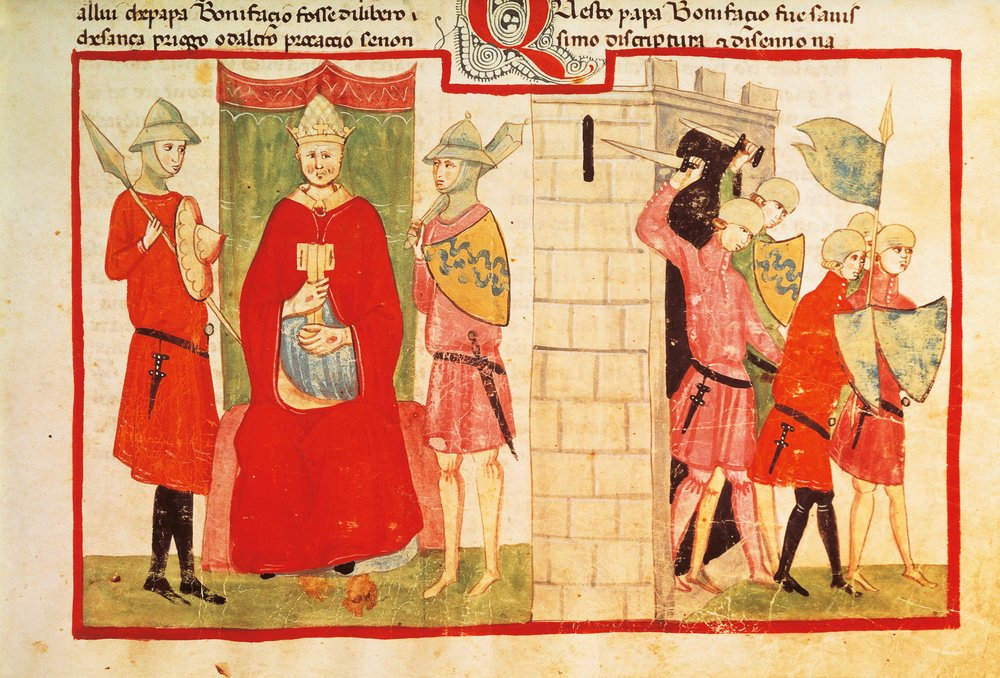 allui che papa Bonifacio fosse dilibero i
che sança priego o d altro procaccio se non
Questo papa Bonifacio fue savis
simo di scriptura & di senno na